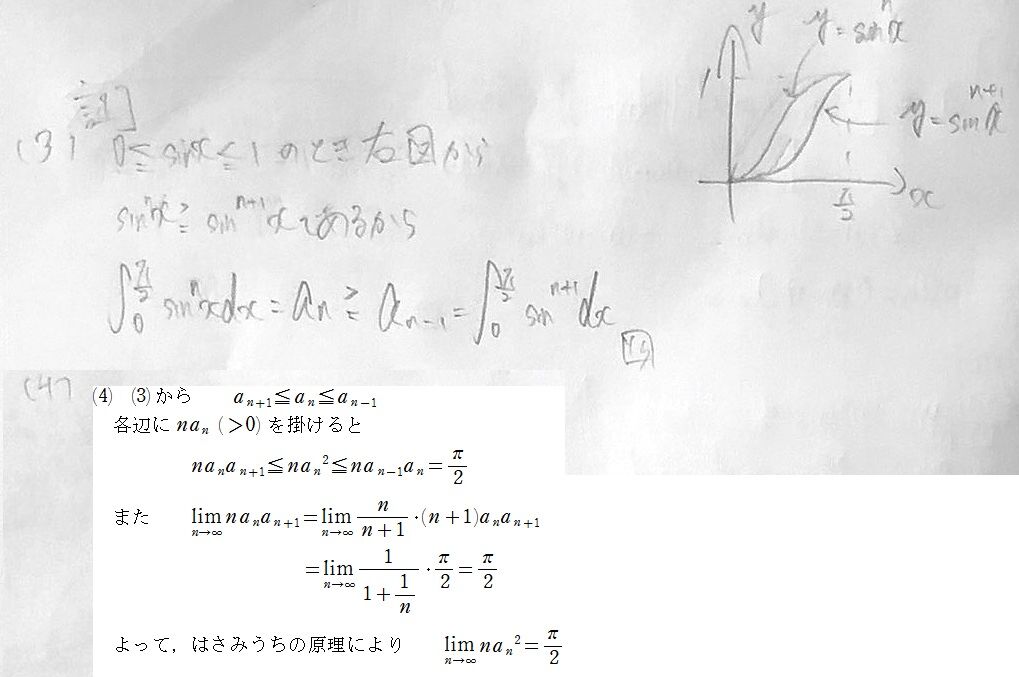 証]
(3) 0≦sinx≦1 のとき右図から
sinⁿx≧sinⁿ⁺¹xであるから
∫₀^{π/2} sinⁿxdx=aₙ≧aₙ₋₁=∫₀^{π/2} sinⁿ⁺¹dx
y
y=sinⁿx
1
y=sinⁿ⁺¹x
π/2
x
(4)
(4) (3)から aₙ₊₁≦aₙ≦aₙ₋₁
各辺に naₙ (>0) を掛けると
naₙaₙ₊₁≦naₙ²≦naₙ₋₁aₙ=π/2
また lim_{n→∞} naₙaₙ₊₁=lim_{n→∞} n/(n+1)·(n+1)aₙaₙ₊₁
=lim_{n→∞} 1/(1+1/n)·π/2=π/2
よって，はさみうちの原理により lim_{n→∞} naₙ²=π/2